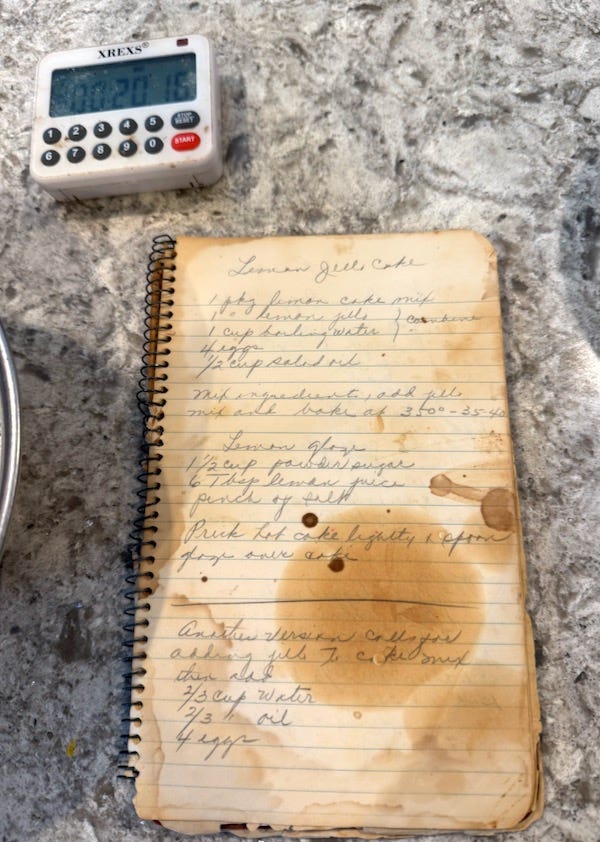 XREXS®
00:20 16
1 2 3 4 5 STOP RESET
6 7 8 9 0 START
Lemon Jello Cake
1 pkg lemon cake mix
1 " lemon jello } combine
1 cup boiling water
4 eggs
1/2 cup salad oil
Mix ingredients, add jello
mix and bake at 350° - 35-40
Lemon glaze
1 1/2 cup powder sugar
6 Tbsp lemon juice
pinch of salt
Prick hot cake lightly & spoon
glaze over cake
Another version calls for
adding jello to cake mix
then add
2/3 cup water
2/3 " oil
4 eggs